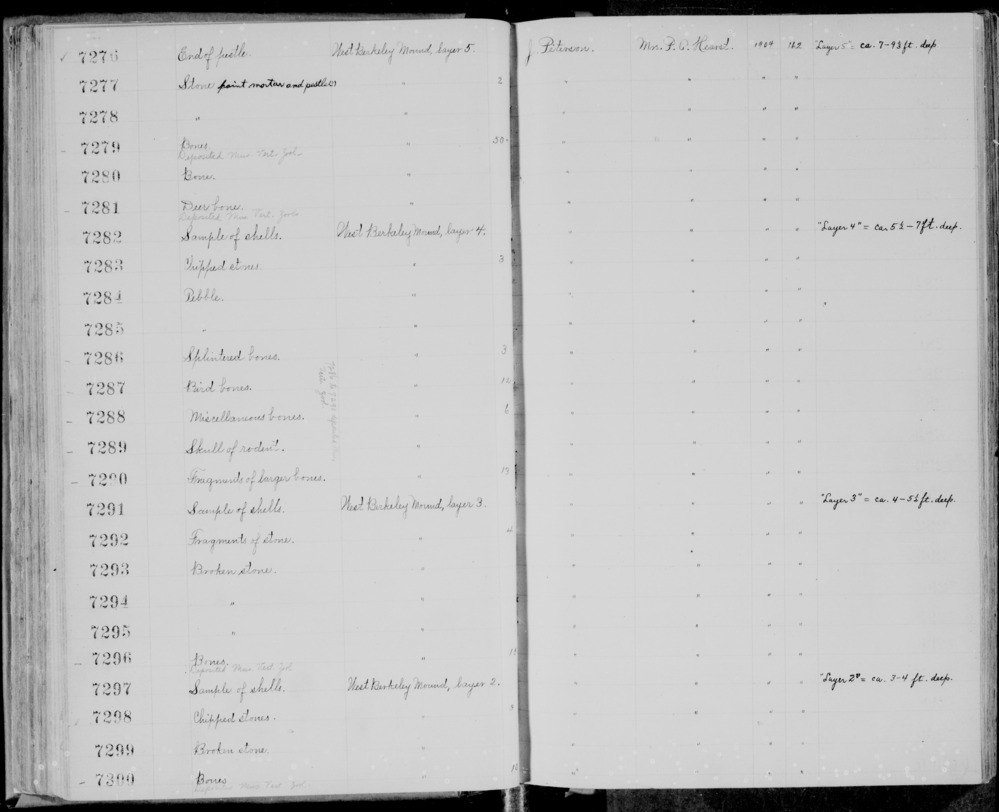 7276 End of pestle. West Berkeley Mound, layer 5. J. Peterson. Mrs. P. A. Hearst. 1904 162 "Layer 5" = ca. 7-9 ft. deep
7277 Stone paint mortar and pestle(s) " 2 " " " "
7278 " " " " " "
7279 Bones. " 50. " " " "
Deposited Mus. Vert. Zool.
7280 Bone. " " " " "
7281 Deer bone. " " " " "
Deposited Mus. Vert. Zool.
7282 Sample of shells. West Berkeley Mound, layer 4. " " " " "Layer 4" = ca. 5½-7 ft. deep.
7283 Chipped stones. " 3 " " " "
7284 Pebble. " " " " "
7285 " " " " " "
7286 Splintered bones. " 3 " " " "
7287 Bird bones. " 12 " " " "
7288 Miscellaneous bones. " 6 " " " "
7289 Skull of rodent. " " " " "
7290 Fragments of larger bones. " 13 " " " "
7291 Sample of shells. West Berkeley Mound, layer 3. " " " " "Layer 3" = ca. 4-5½ ft. deep.
7292 Fragments of stone. " 4 " " " "
7293 Broken stone. " " " " "
7294 " " " " " "
7295 " " " " " "
7296 Bones. " " " " "
Deposited Mus. Vert. Zool
7297 Sample of shells. West Berkeley Mound, layer 2. " " " " "Layer 2" = ca. 3-4 ft. deep.
7298 Chipped stones. " " " " "
7299 Broken stone. " " " " "
7300 Bones " " " " "
Deposited Mus. Vert. Zool.